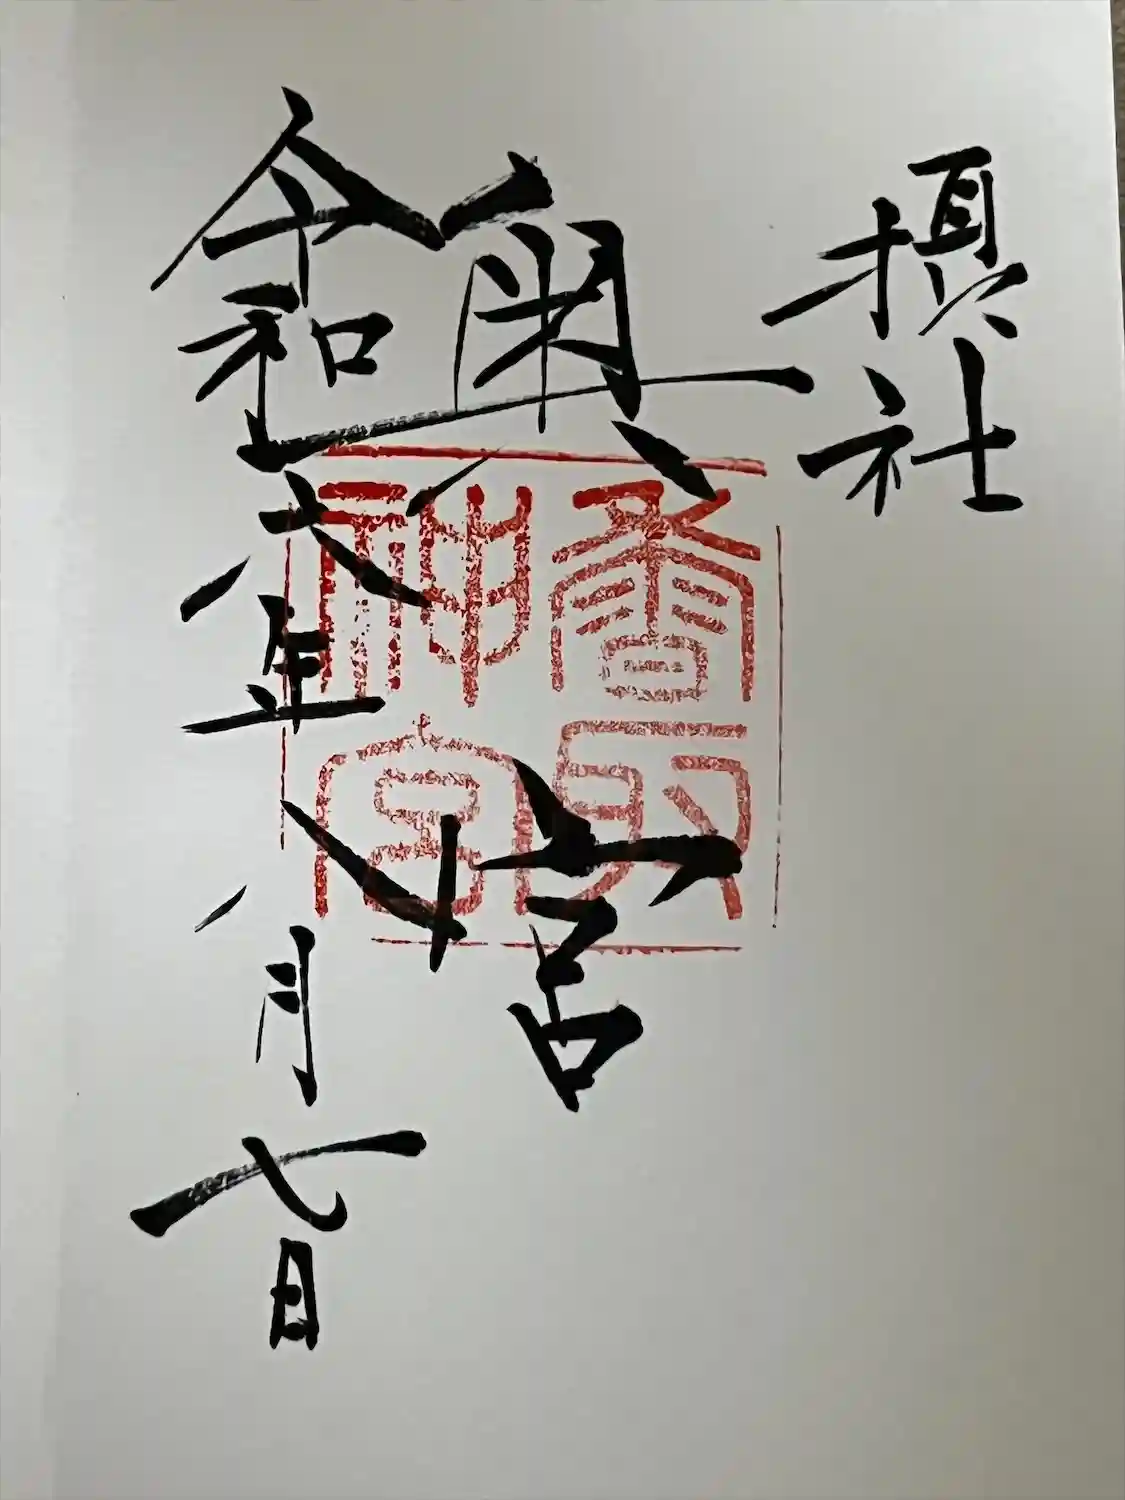 摂社
奥宮
香取
神宮
令和六年八月七日